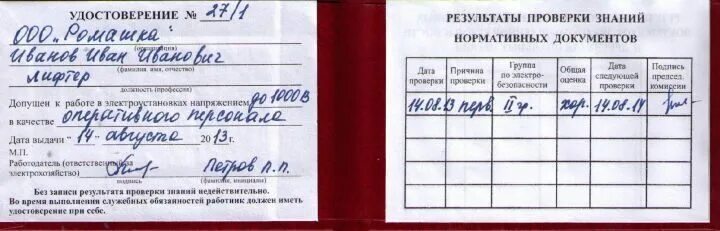 УДОСТОВЕРЕНИЕ № 27/1
ООО "Ромашка"
(организация)
Иванов Иван Иванович
(фамилия, имя, отчество)
лифтер
должность (профессия)
Допущен к работе в электроустановках напряжением до 1000В
в качестве оперативного персонала
Дата выдачи "14" августа 2013 г.
М.П.
Работодатель (ответственный за
электрохозяйство) Петров П.П.
подпись (фамилия, инициалы)
Без записи результата проверки знаний недействительно.
Во время выполнения служебных обязанностей работник должен иметь
удостоверение при себе.
РЕЗУЛЬТАТЫ ПРОВЕРКИ ЗНАНИЙ
НОРМАТИВНЫХ ДОКУМЕНТОВ
Дата проверки Причина проверки Группа по электро-безопасности Общая оценка Дата следующей проверки Подпись председ. комиссии
14.08.13 перв. II гр. хор. 14.08.14